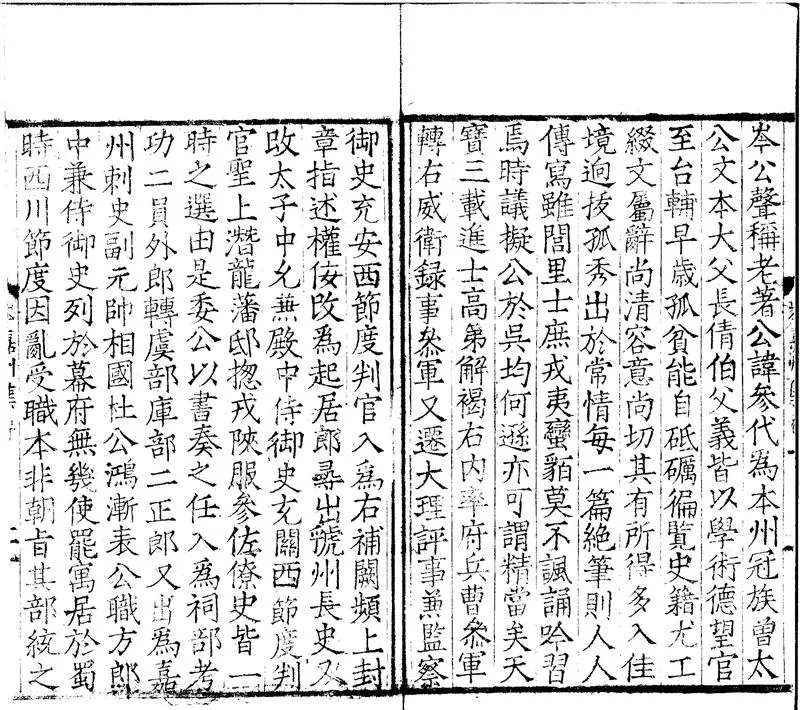 岑公聲稱老著公諱參代為本州冠族曾太
公文本大父長倩伯父義皆以學術德望官
至台輔早歲孤貧能自砥礪徧覽史籍尤工
綴文屬辭尚清容意尚切其有所得多入佳
境逈拔孤秀出於常情每一篇絶筆則人人
傳寫雖閭里士庶戎夷蠻貊莫不諷誦吟習
焉時議擬公於吳均何遜亦可謂精當矣天
寶三載進士高第解褐右内率府兵曹叅軍
轉右威衛録事叅軍又遷大理評事兼監察
御史充安西節度判官入爲右補闕頻上封
章指述權佞改爲起居郎尋出虢州長史又
改太子中允兼殿中侍御史充關西節度判
官聖上潛龍藩邸揔戎陝服參佐僚史皆一
時之選由是委公以書奏之任入爲祠部考
功二員外郎轉虞部庫部二正郎又出爲嘉
州刺史副元帥相國杜公鴻漸表公職方郎
中兼侍御史列於幕府無幾使罷寓居於蜀
時西川節度因亂受職本非朝旨其部統之